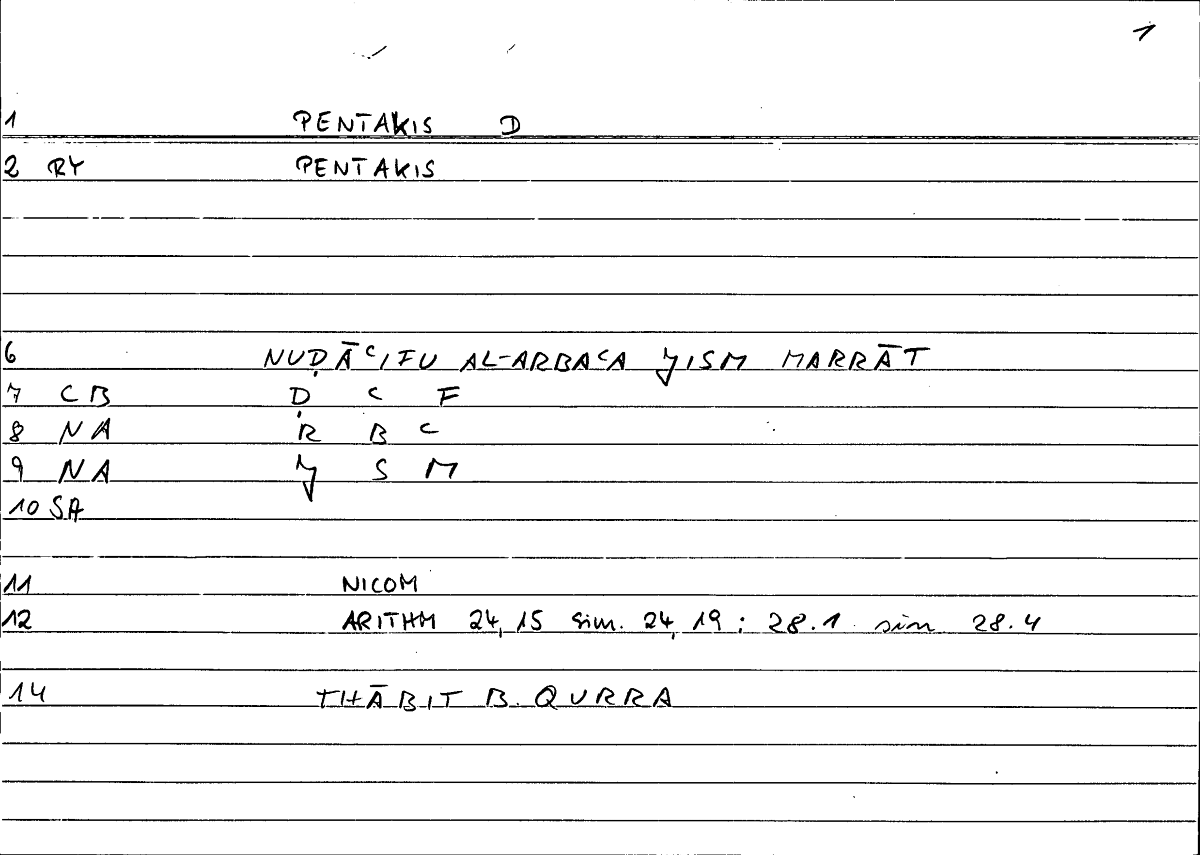 1
1 PENTAKIS D
2 RY PENTAKIS
6 NUḌĀʿIFU AL-ARBAʿA JISM MARRĀT
7 CB Ḍ ʿ F
8 NA R B ʿ
9 NA J S M
10 SA
11 NICOM
12 ARITHM 24,15 sim. 24,19 : 28.1 sim 28.4
14 THĀBIT B. QURRA